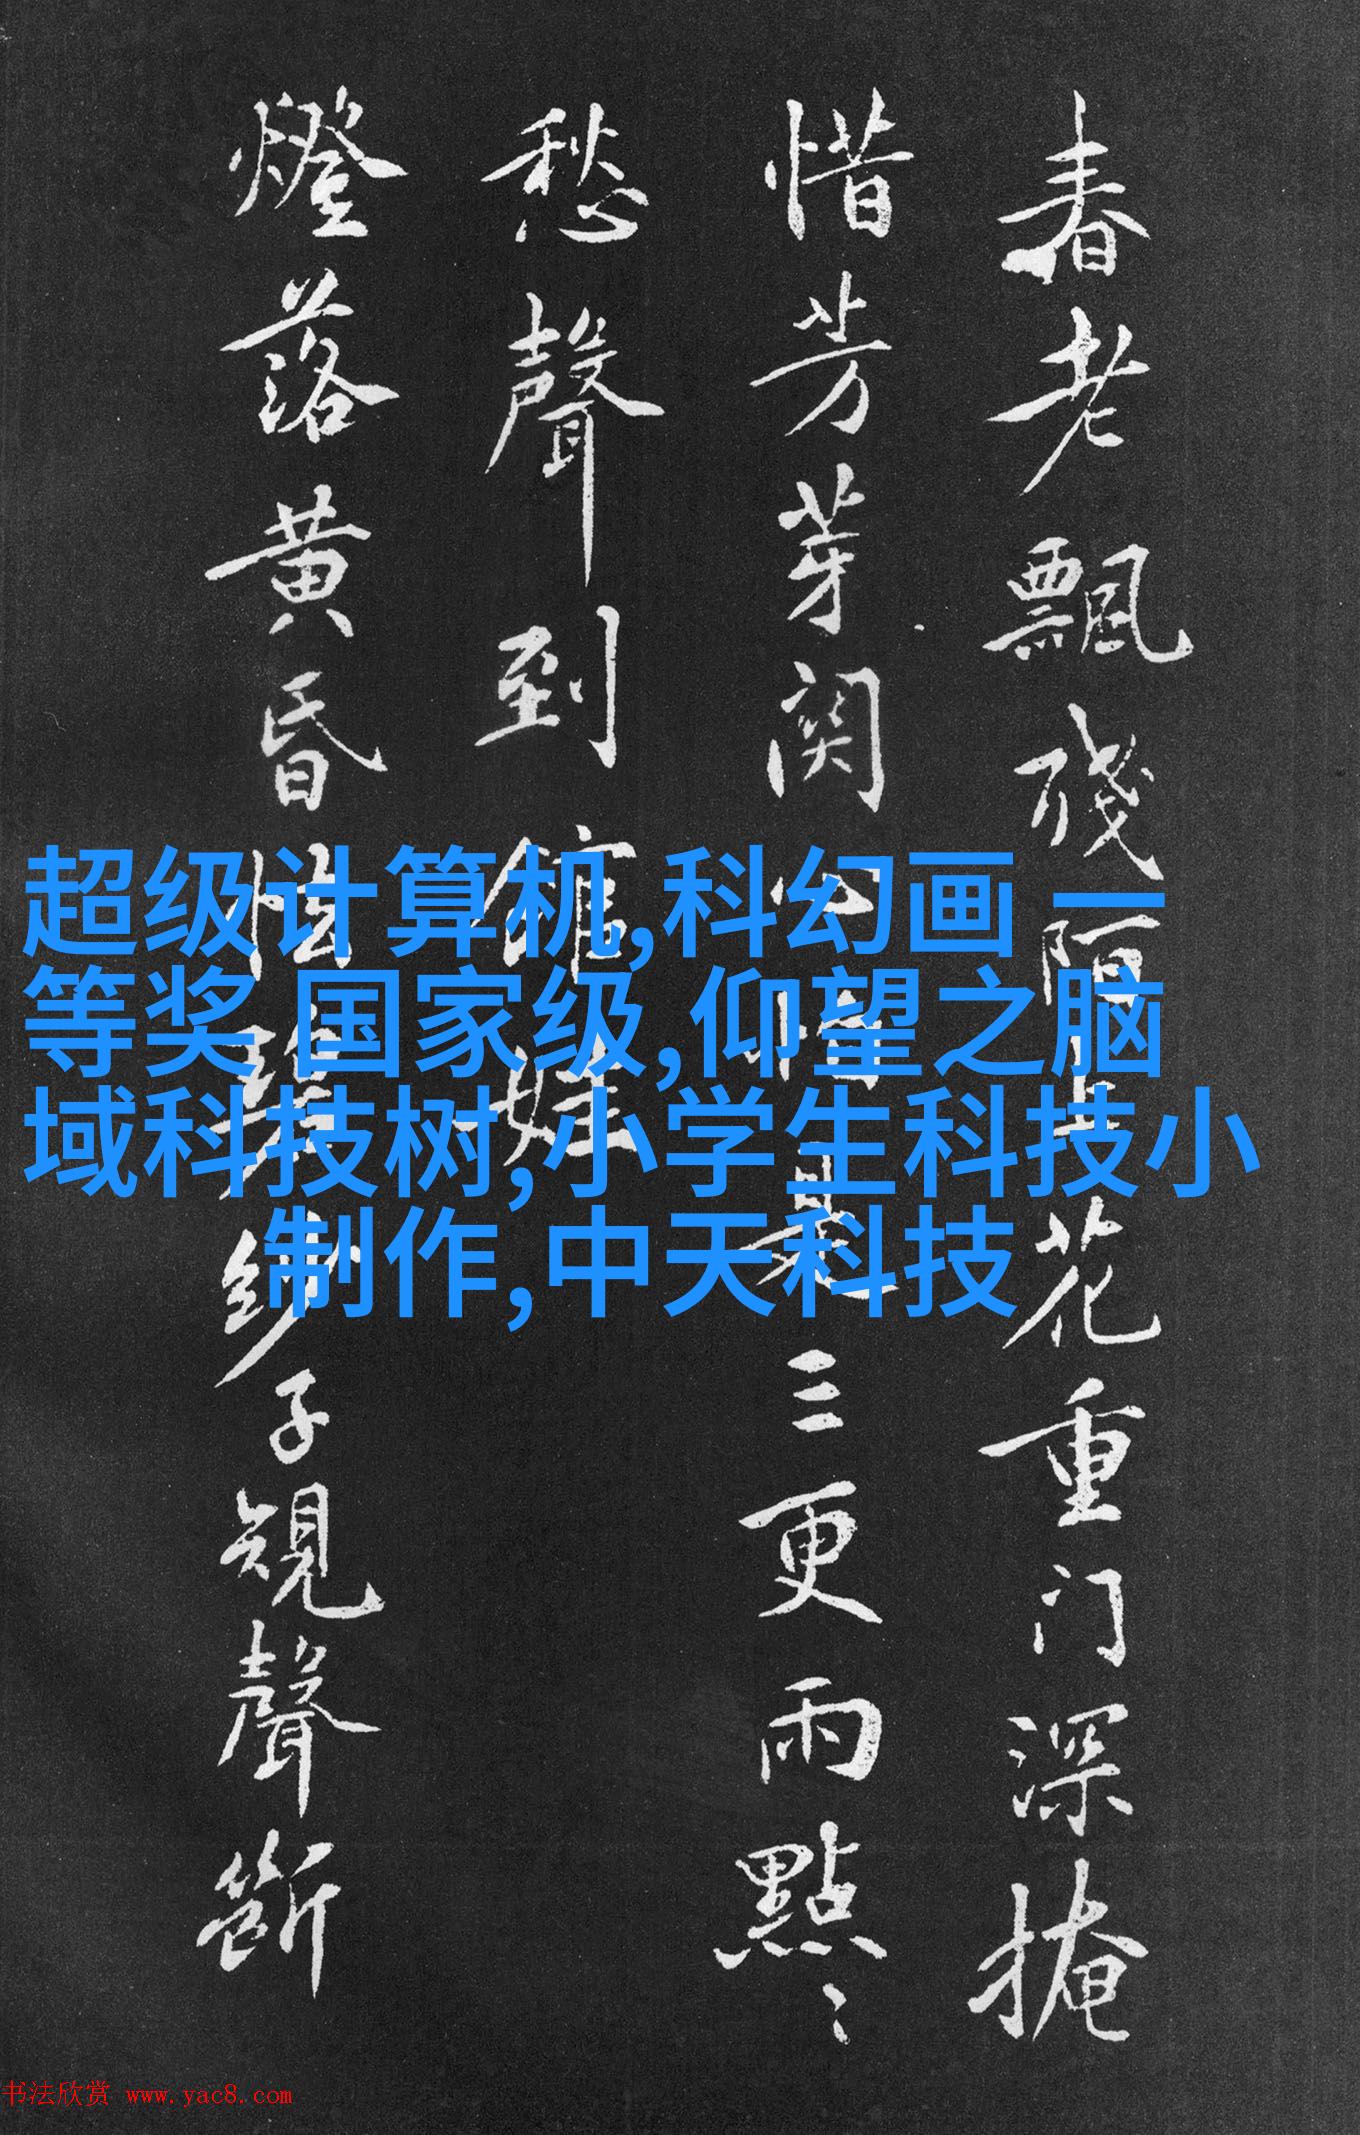 春老飄殘陌上花重门深掩
惜芳芽関心是三更雨點〻
愁聲到館娃
燈落黄昏碧纱子規聲斷
超级计算机,科幻画 一
等奖 国家级,仰望之脑
域科技树,小学生科技小
制作,中天科技
书法欣赏 www.yac8.com